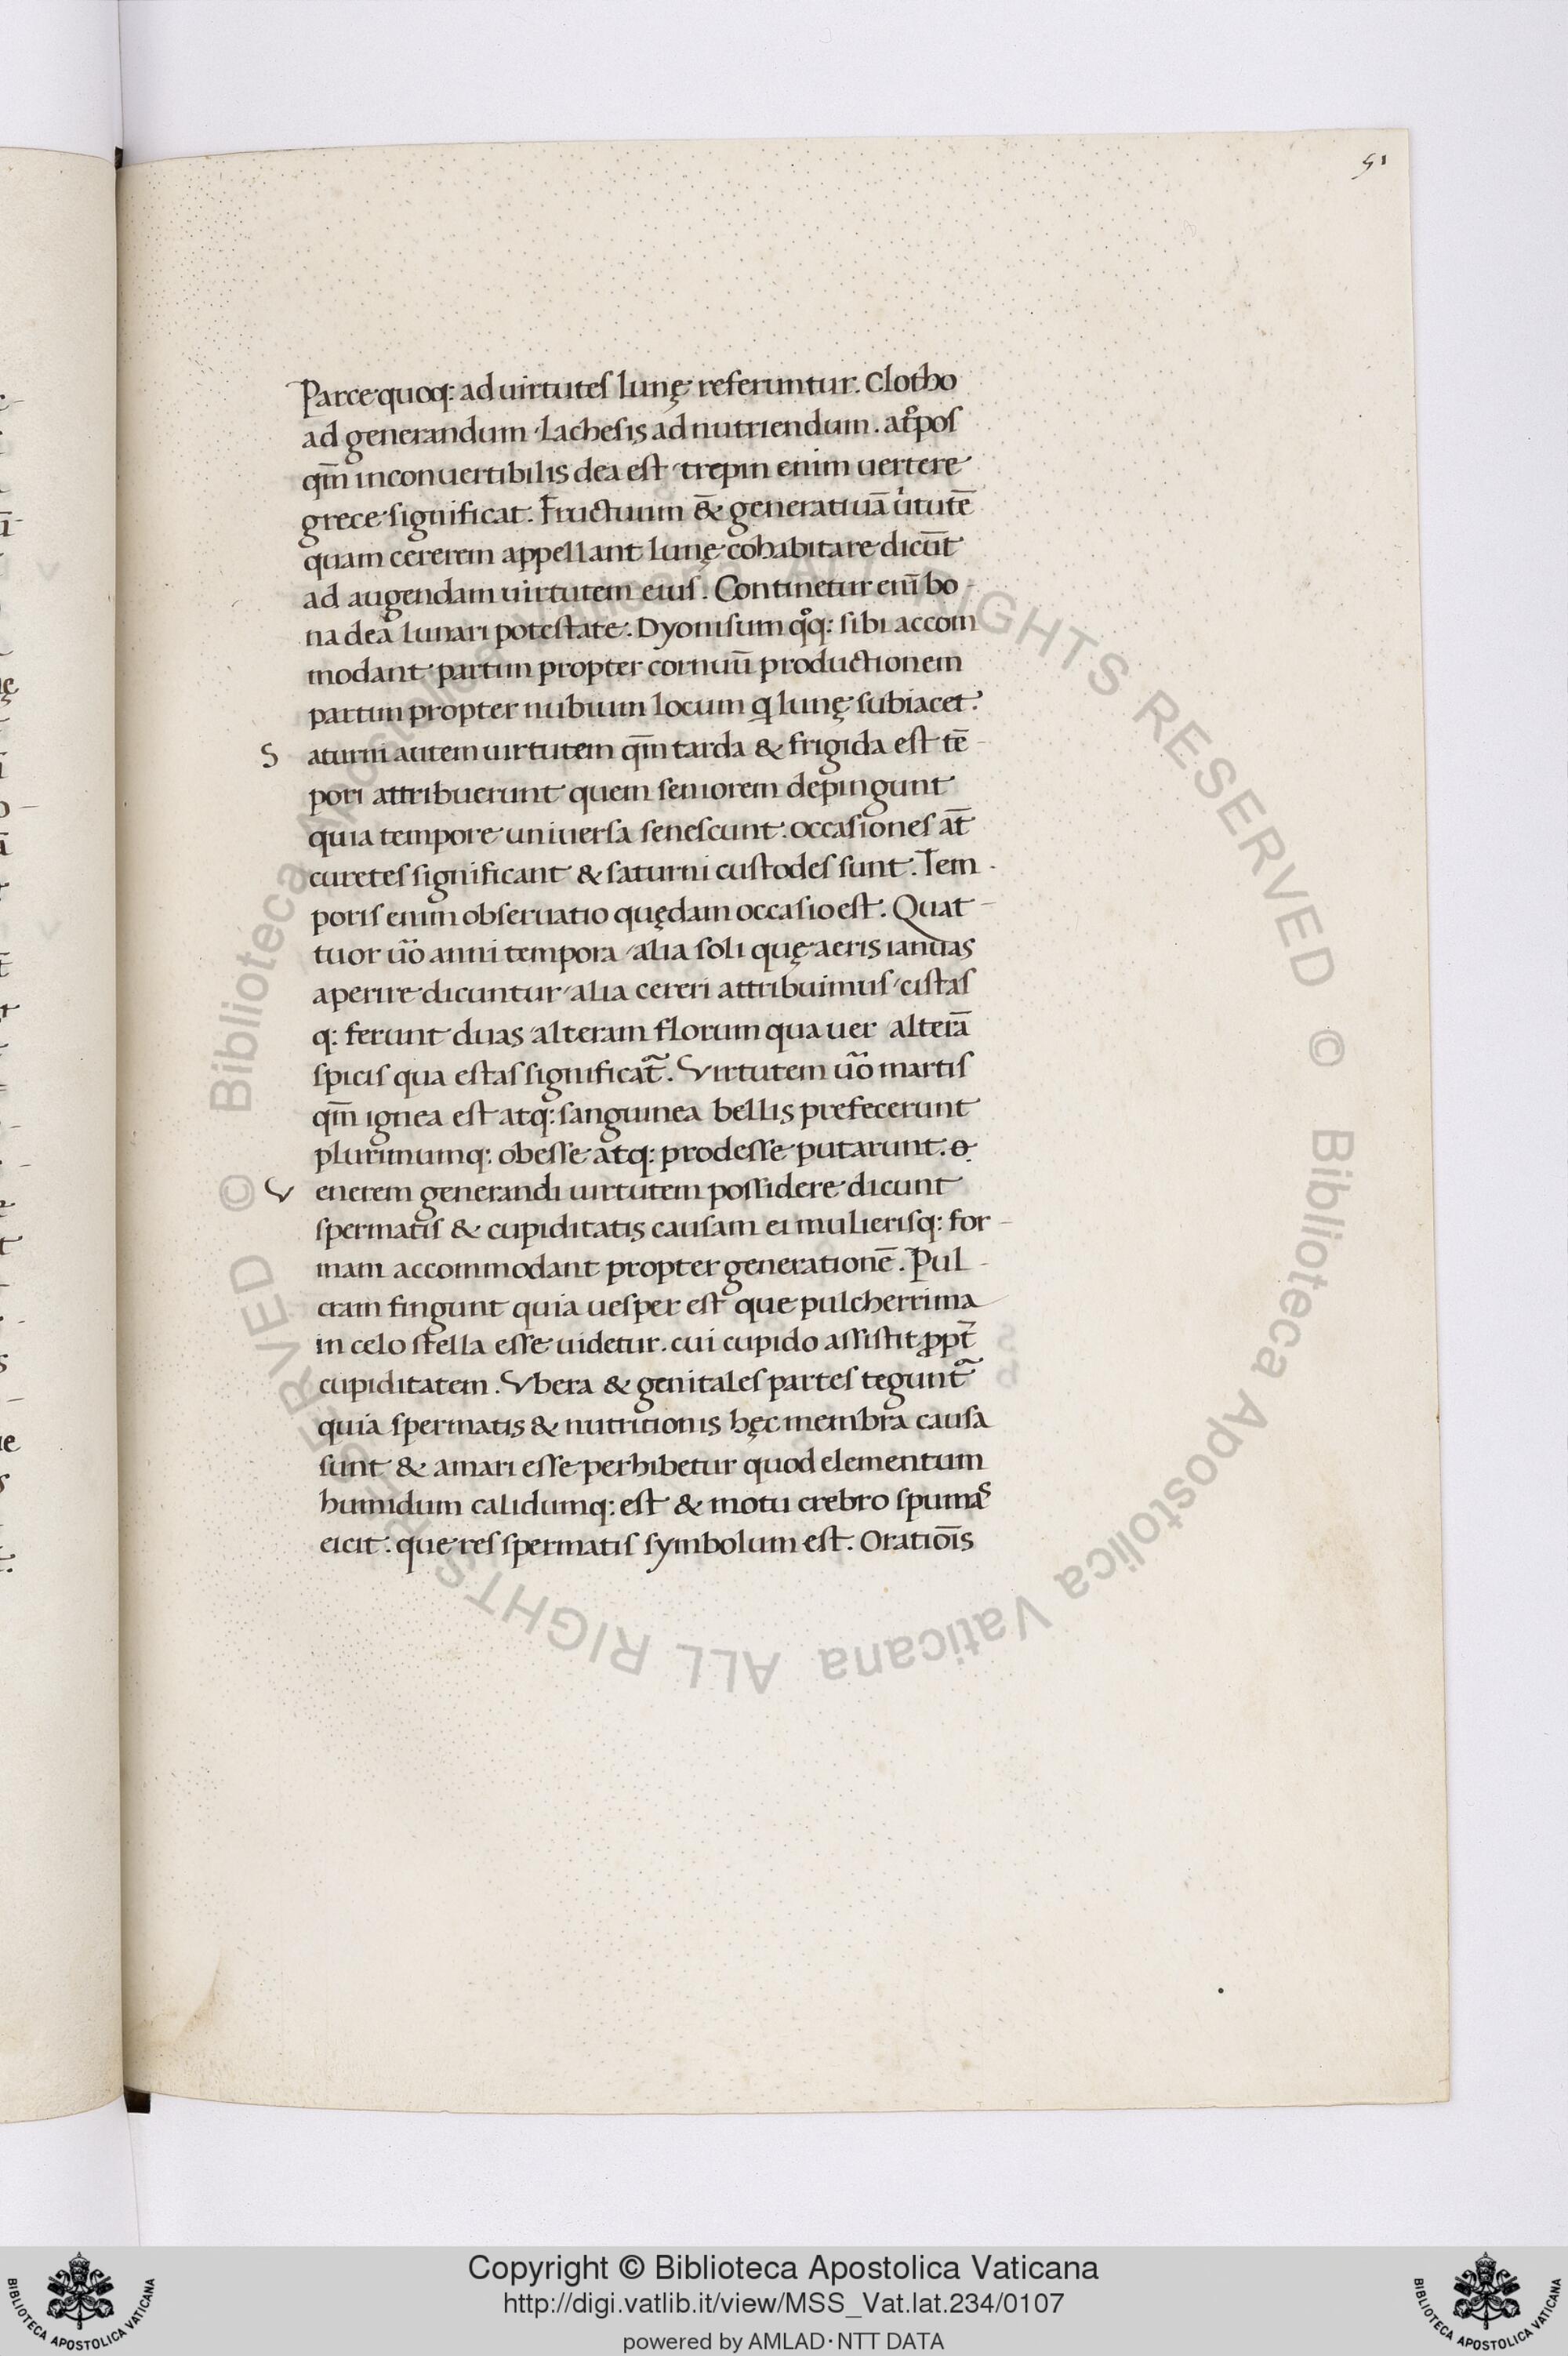 51
Parce quoq: ad uirtutes lunę referuntur. Clotho
ad generandum. Lachesis ad nutriendum. atp̊os
qm̄ inconuertibilis dea est. trepin enim uertere
grece significat. Fructuum & generatiuā u̇itutē
quam cererem appellant lunę cohabitare dicūt
ad augendam uirtutem eius. Continetur enī bo-
na dea lunari potestate. Dyonisum qͦq: sibi accom
modant partim propter cornuū productionem
partim propter nubium locum q lunę subiacet.
Saturni autem uirtutem qm̄ tarda & frigida est tē-
pori attribuerunt quem seniorem depingunt
quia tempore uniuersa senescunt. occasiones at̄
curetes significant & saturni custodes sunt. Tem-
poris enim obseruatio quędam occasio est. Quat-
tuor uō anni tempora alia soli quę aeris ianuas
aperire dicuntur alia cereri attribuimus cistas
q: ferunt duas alteram florum qua uer alterā
spicis qua estas significat᷑. Virtutem uō martis
qm̄ ignea est atq: sanguinea bellis prefecerunt
plurimumq: obesse atq: prodesse putarunt.
Venerem generandi uirtutem possidere dicunt
spermatis & cupiditatis causam ei mulierisq: for-
mam accommodant propter generationē. Pul-
cram fingunt quia uesper est que pulcherrima
in celo stella esse uidetur. cui cupido assistit ꝓpt̄
cupiditatem. Vbera & genitales partes tegunt᷑
quia spermatis & nutritionis hęc membra causa
sunt & amari esse perhibetur quod elementum
humidum calidumq: est & motu crebro spumas
eicit. que res spermatis symbolum est. Oratiōis
© Biblioteca Apostolica Vaticana ALL RIGHTS RESERVED © Biblioteca Apostolica Vaticana ALL RIGHTS RESERVED
BIBLIOTECA APOSTOLICA VATICANA
Copyright © Biblioteca Apostolica Vaticana
http://digi.vatlib.it/view/MSS_Vat.lat.234/0107
powered by AMLAD·NTT DATA
BIBLIOTECA APOSTOLICA VATICANA